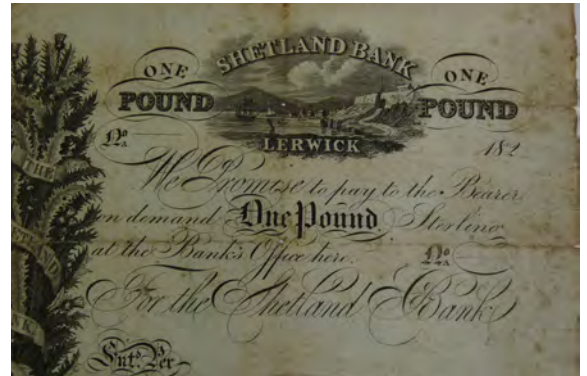 SHETLAND BANK
ONE
ONE
POUND
POUND
LERWICK
No
182
We Promise to pay to the Bearer
on demand One Pound Sterling
at the Bank's Office here. No
For the Shetland Bank
THE
SHETLAND
K
Entd. Per